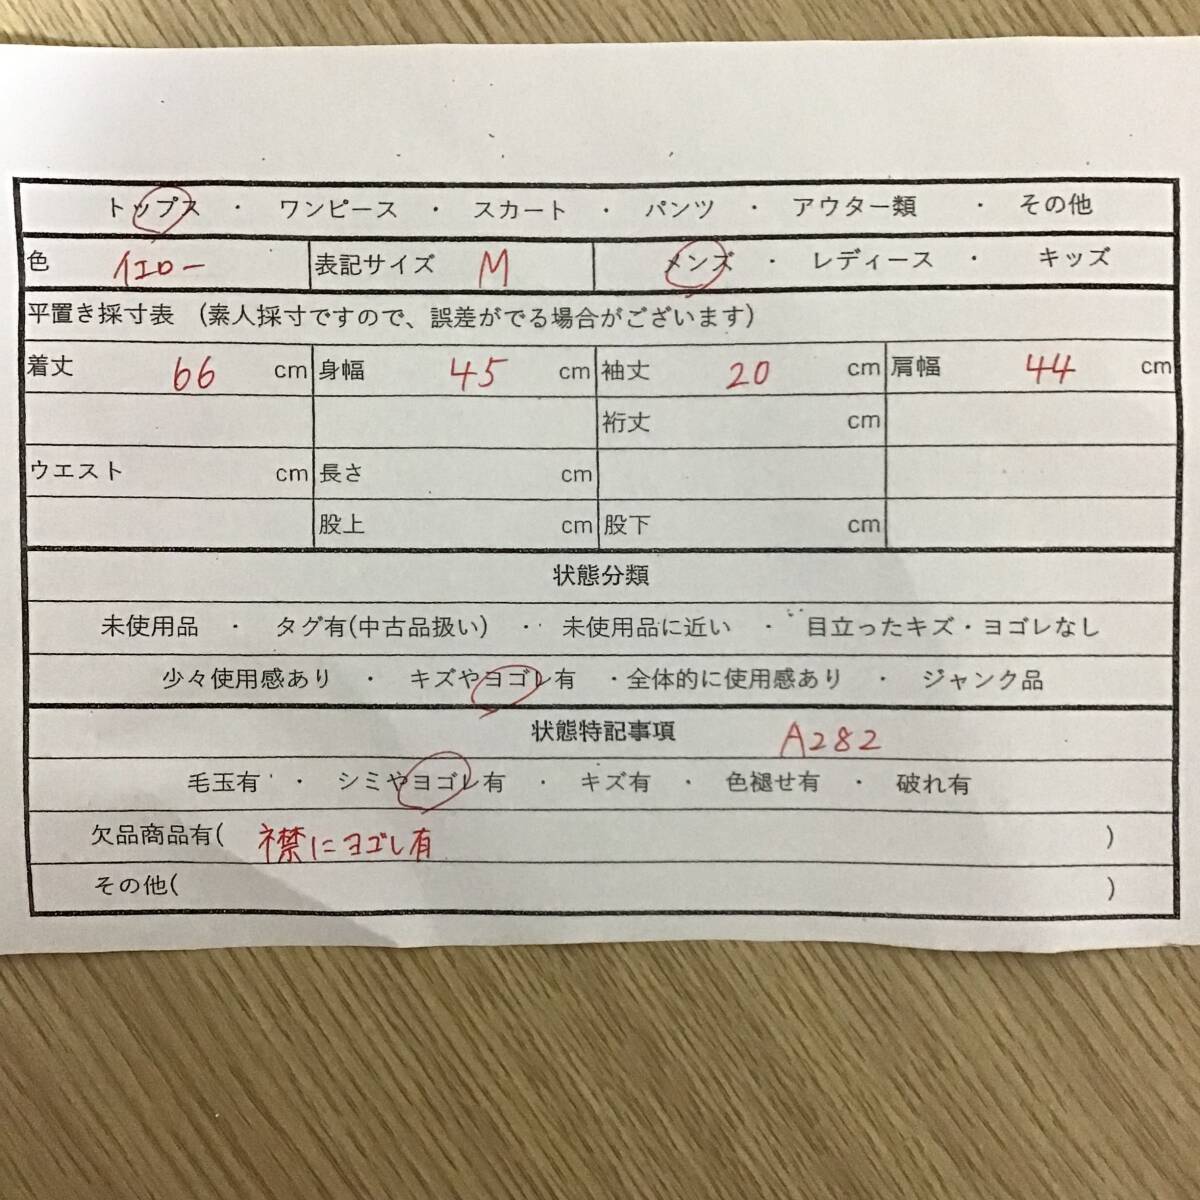 トップス ・ ワンピース ・ スカート ・ パンツ ・ アウター類 ・ その他
色 イエロー 表記サイズ M メンズ ・ レディース ・ キッズ
平置き採寸表 (素人採寸ですので、誤差がでる場合がございます)
着丈 66 cm 身幅 45 cm 袖丈 20 cm 肩幅 44 cm
裄丈 cm
ウエスト cm 長さ cm
股上 cm 股下 cm
状態分類
未使用品 ・ タグ有(中古品扱い) ・ 未使用品に近い ・ 目立ったキズ・ヨゴレなし
少々使用感あり ・ キズやヨゴレ有 ・全体的に使用感あり ・ ジャンク品
状態特記事項 A282
毛玉有 ・ シミやヨゴレ有 ・ キズ有 ・ 色褪せ有 ・ 破れ有
欠品商品有( 襟にヨゴレ有 )
その他( )